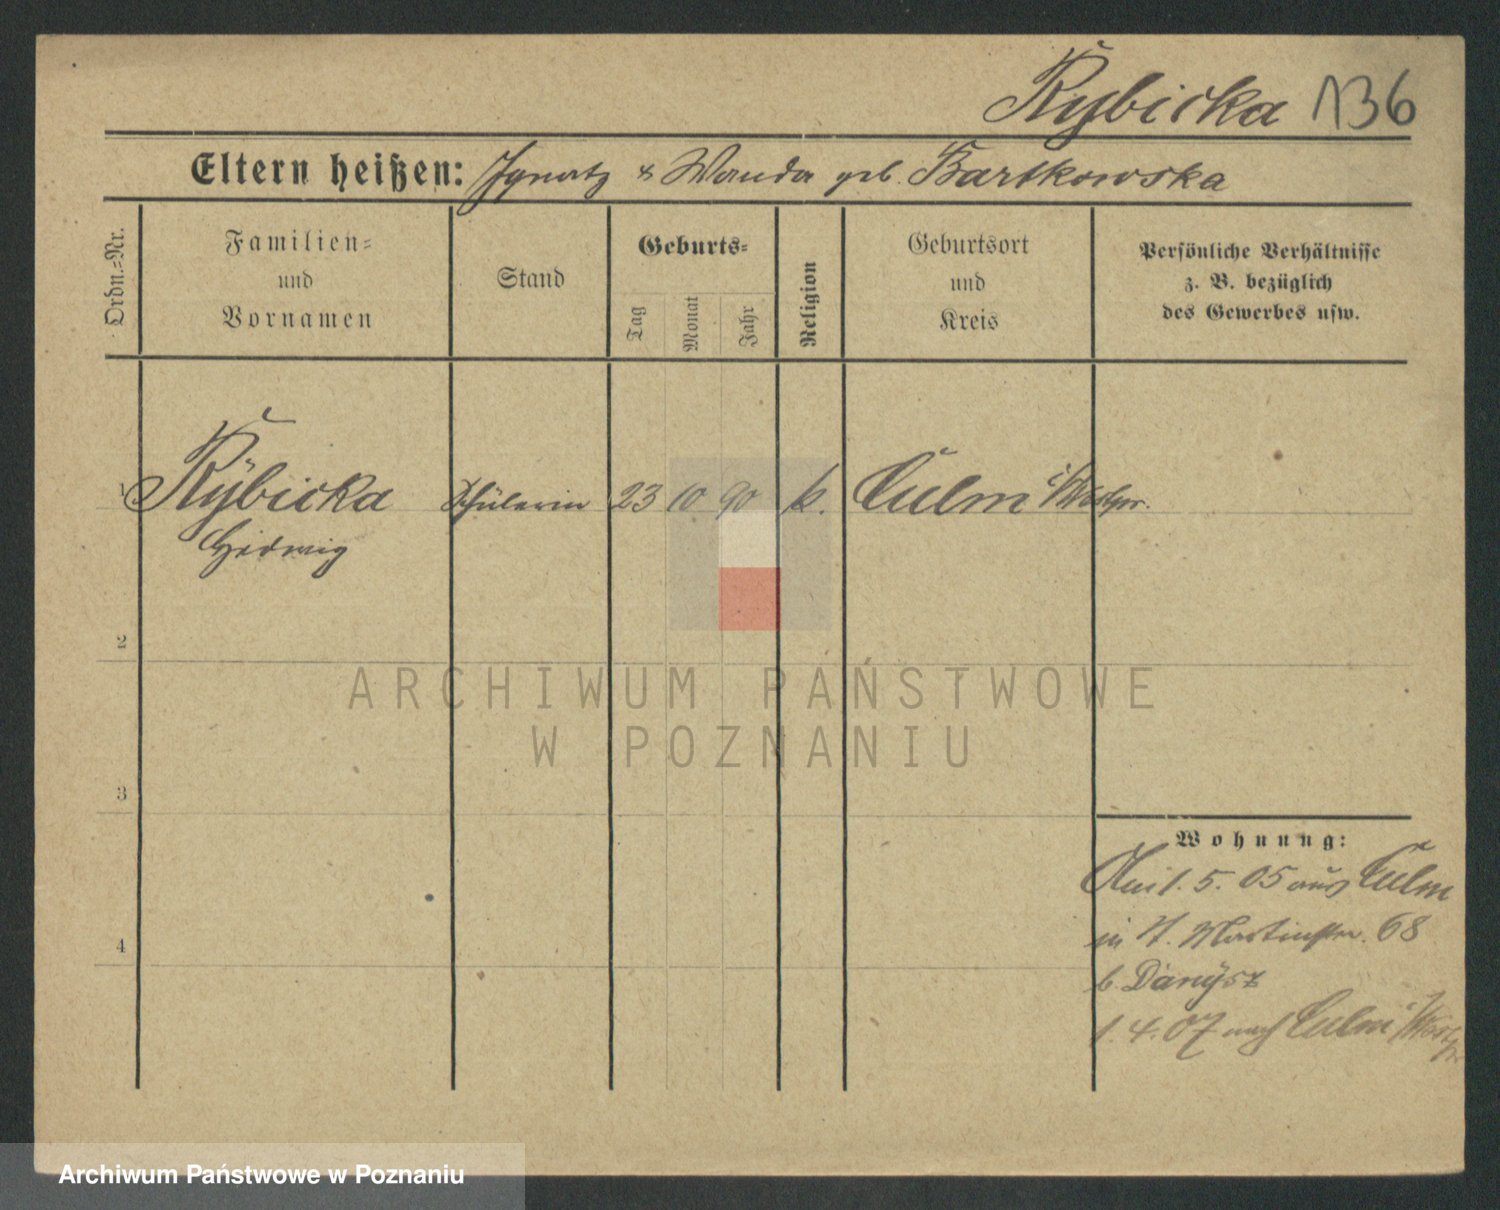 Rybicka 136
Eltern heißen: Ignatz & Wanda geb. Bartkowska
Ordn.=Nr.
Familien=
und
Vornamen
Stand
Geburts=
Tag
Monat
Jahr
Religion
Geburtsort
und
Kreis
Persönliche Verhältnisse
z. B. bezüglich
des Gewerbes usw.
1 Rybicka Schülerin 23 10 90 k. Culm i/Westpr.
Hedwig
2
3
4
Wohnung:
1. 5. 05 aus Culm
in St. Martinstr. 68
b. Danÿsz
1. 4. 07 nach Culm i/Westpr.
ARCHIWUM PAŃSTWOWE
W POZNANIU
Archiwum Państwowe w Poznaniu